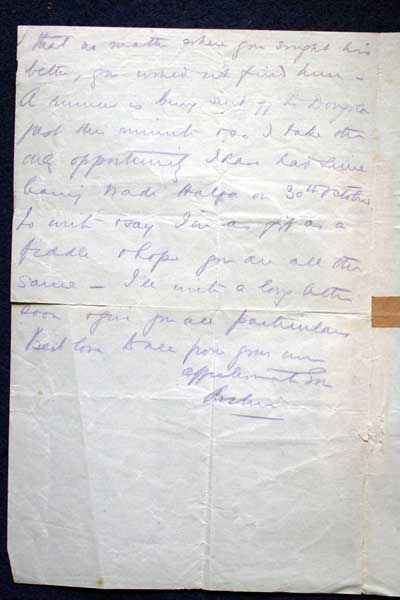 that no matter where you sought his
better, you would not find him –
A runner is being sent off to Dongola
just this minute & so I take the
only opportunity I have had since
leaving Wadi Halfa on 30th October,
to write & say I'm as fit as a
fiddle & hope you are all the
same – I'll write a long letter
soon & give you all particulars
Best love to all from your own
affectionate Son